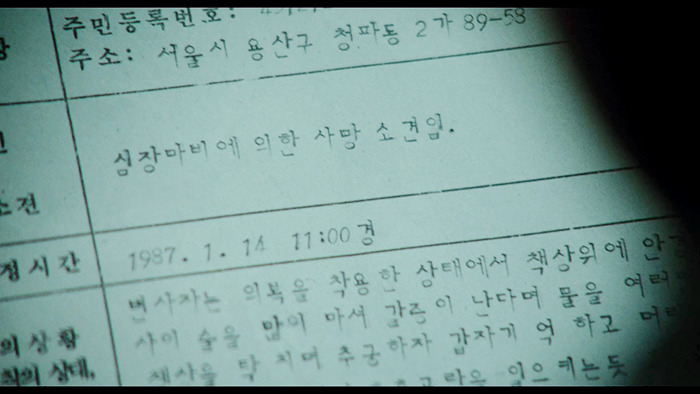 주민등록번호:
주소: 서울시 용산구 청파동 2가 89-58
심장마비에 의한 사망 소견임.
소견
정시간 1987. 1. 14 11:00경
변사자는 의복을 착용한 상태에서 책상위에
의 상황 사이 술을 많이 마셔 갈증이 난다며 물을 여러
의 상태, 책상을 탁 치며 추궁하자 갑자기 억 하고 머리
일으키는듯